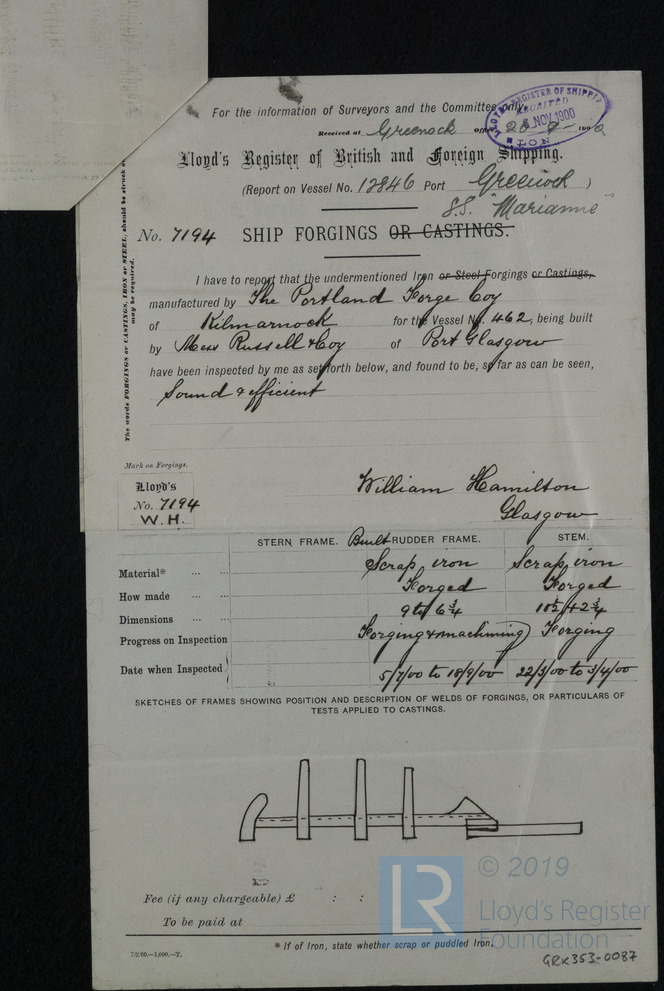 For the information of Surveyors and the Committee only.
Received at Greenock
LLOYD'S REGISTER OF SHIPPING
RECEIVED
NOV 1900
LON
Lloyd's Register of British and Foreign Shipping.
(Report on Vessel No. 12846 Port Greenock )
S.S. "Marianne"
No. 7194 SHIP FORGINGS OR CASTINGS.
The words FORGINGS or CASTINGS, IRON or STEEL, should be struck out as may be required.
I have to report that the undermentioned Iron or Steel Forgings or Castings,
manufactured by The Portland Forge Coy
of Kilmarnock for the Vessel No. 462, being built
by Mess Russell & Coy of Port Glasgow
have been inspected by me as set forth below, and found to be, so far as can be seen,
Sound & efficient
Mark on Forgings.
Lloyd's
No. 7194
W.H.
William Hamilton
Glasgow
STERN FRAME. Built RUDDER FRAME. STEM.
Material* ... ... Scrap iron Scrap iron
How made ... ... Forged Forged
Dimensions ... ... 9 to 6¾
Progress on Inspection Forging & machining Forging
Date when Inspected 5/7/00 to 18/9/00 22/3/00 to 3/4/00
SKETCHES OF FRAMES SHOWING POSITION AND DESCRIPTION OF WELDS OF FORGINGS, OR PARTICULARS OF
TESTS APPLIED TO CASTINGS.
Fee (if any chargeable) £ : :
To be paid at
* If of Iron, state whether scrap or puddled Iron.
7/2/00.—1,000.—T.
LR
© 2019
Lloyd's Register
Foundation
GRK353-0087